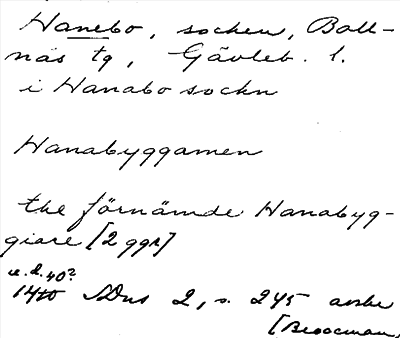 Hanebo, socken, Boll-
näs tg, Gävleb. l.
i Hanabo sockn
Hanabyggamen
the förnämde Hanabyg-
giare [2 ggr]
u.d. 40?
1410 SDns 2, s. 245 avskr
[Broocman,